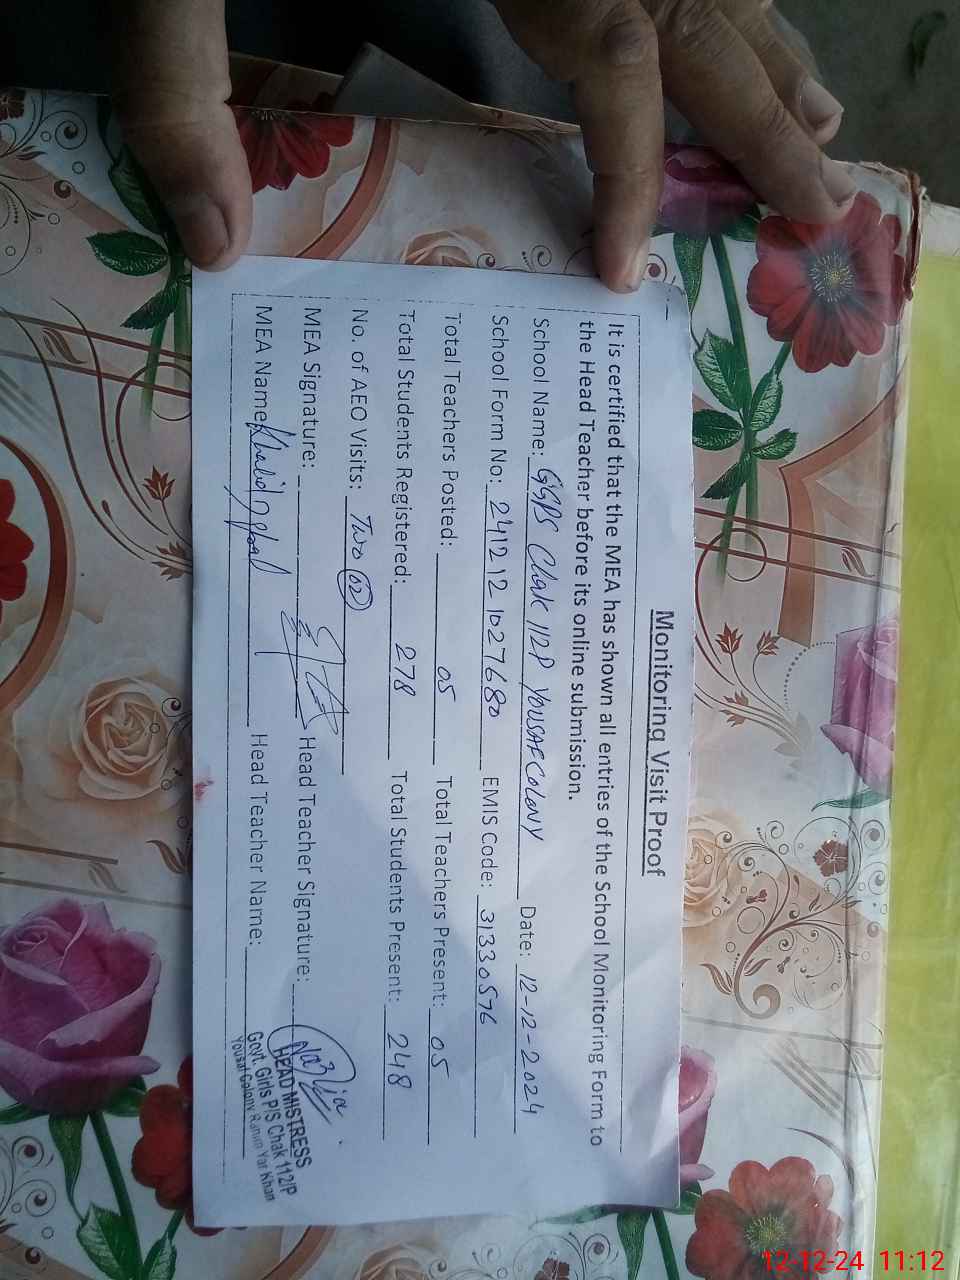 Monitoring Visit Proof
It is certified that the MEA has shown all entries of the School Monitoring Form to
the Head Teacher before its online submission.
School Name: GGPS Chak 112P YOUSAF COLONY Date: 12-12-2024
School Form No: 2412121027680 EMIS Code: 31330576
Total Teachers Posted: 05 Total Teachers Present: 05
Total Students Registered: 278 Total Students Present: 248
No. of AEO Visits: Two 02
MEA Signature: Head Teacher Signature: Nazia
MEA Name: Khalid Iqbal Head Teacher Name:
HEAD MISTRESS
Govt. Girls P/S Chak 112/P
Yousaf Colony Rahim Yar Khan
12-12-24 11:12